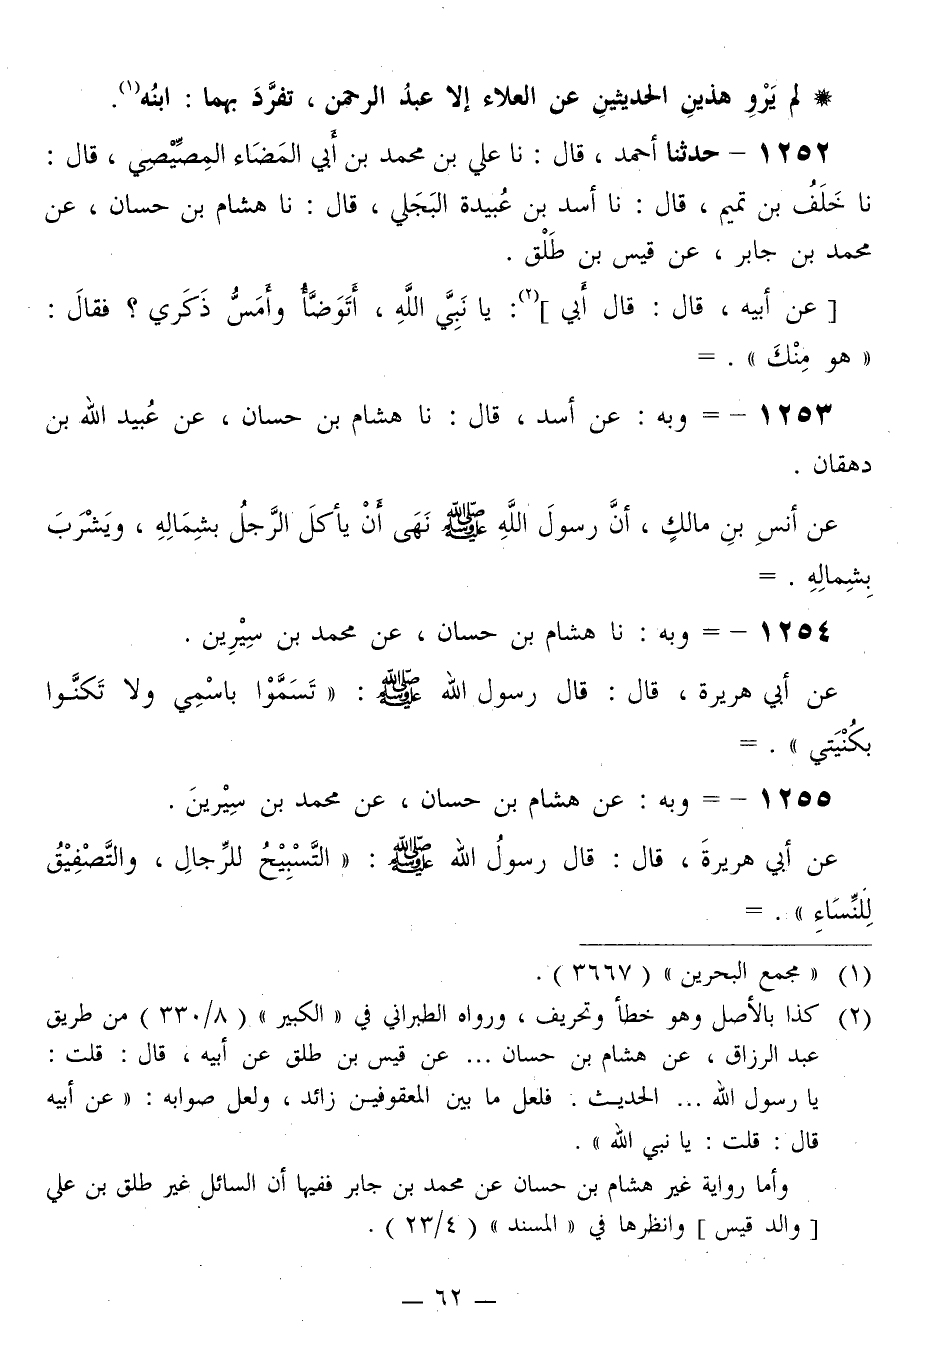 * لم يَرْوِ هذينِ الحديثينِ عن العلاء إلا عبدُ الرحمن ، تفرَّدَ بهما : ابنُه(١).
١٢٥٢ – حدثنا أحمد ، قال : نا علي بن محمد بن أَبي المَضَاء المِصيِّصِي ، قال :
نا خَلَفُ بن تميم ، قال : نا أسد بن عُبيدة البَجَلي ، قال : نا هشام بن حسان ، عن
محمد بن جابر ، عن قيس بن طَلْق .
[ عن أبيه ، قال : قال أَبي ](٢): يا نَبِيَّ اللَّهِ ، أَتَوَضَّأُ وأَمَسُّ ذَكَري ؟ فقالَ :
« هو مِنْكَ » . =
١٢٥٣ – = وبه : عن أسد ، قال : نا هشام بن حسان ، عن عُبيد الله بن
دهقان .
عن أنسِ بنِ مالكٍ ، أنَّ رسولَ اللَّهِ ﷺ نَهَى أَنْ يأكلَ الرَّجلُ بشِمَالِهِ ، ويَشْرَبَ
بِشِمالِهِ . =
١٢٥٤ – = وبه : نا هشام بن حسان ، عن محمد بن سِيْرِين .
عن أبي هريرة ، قال : قال رسول الله ﷺ : « تَسَمَّوْا باسْمِي ولا تَكنَّوا
بكُنْيَتي » . =
١٢٥٥ – = وبه : عن هشام بن حسان ، عن محمد بن سِيْرينَ .
عن أبي هريرةَ ، قال : قال رسولُ الله ﷺ : « التَّسْبِيْحُ للرِّجالِ ، والتَّصْفِيْقُ
لِلنِّسَاءِ » . =
(١) « مجمع البحرين » ( ٣٦٦٧ ) .
(٢) كذا بالأصل وهو خطأ وتحريف ، ورواه الطبراني في « الكبير » ( ٣٣٠/٨ ) من طريق
عبد الرزاق ، عن هشام بن حسان ... عن قيس بن طلق عن أبيه ، قال : قلت :
يا رسول الله ... الحديث . فلعل ما بين المعقوفين زائد ، ولعل صوابه : « عن أبيه
قال : قلت : يا نبي الله » .
وأما رواية غير هشام بن حسان عن محمد بن جابر ففيها أن السائل غير طلق بن علي
[ والد قيس ] وانظرها في « المسند » ( ٢٣/٤ ) .
— ٦٢ —